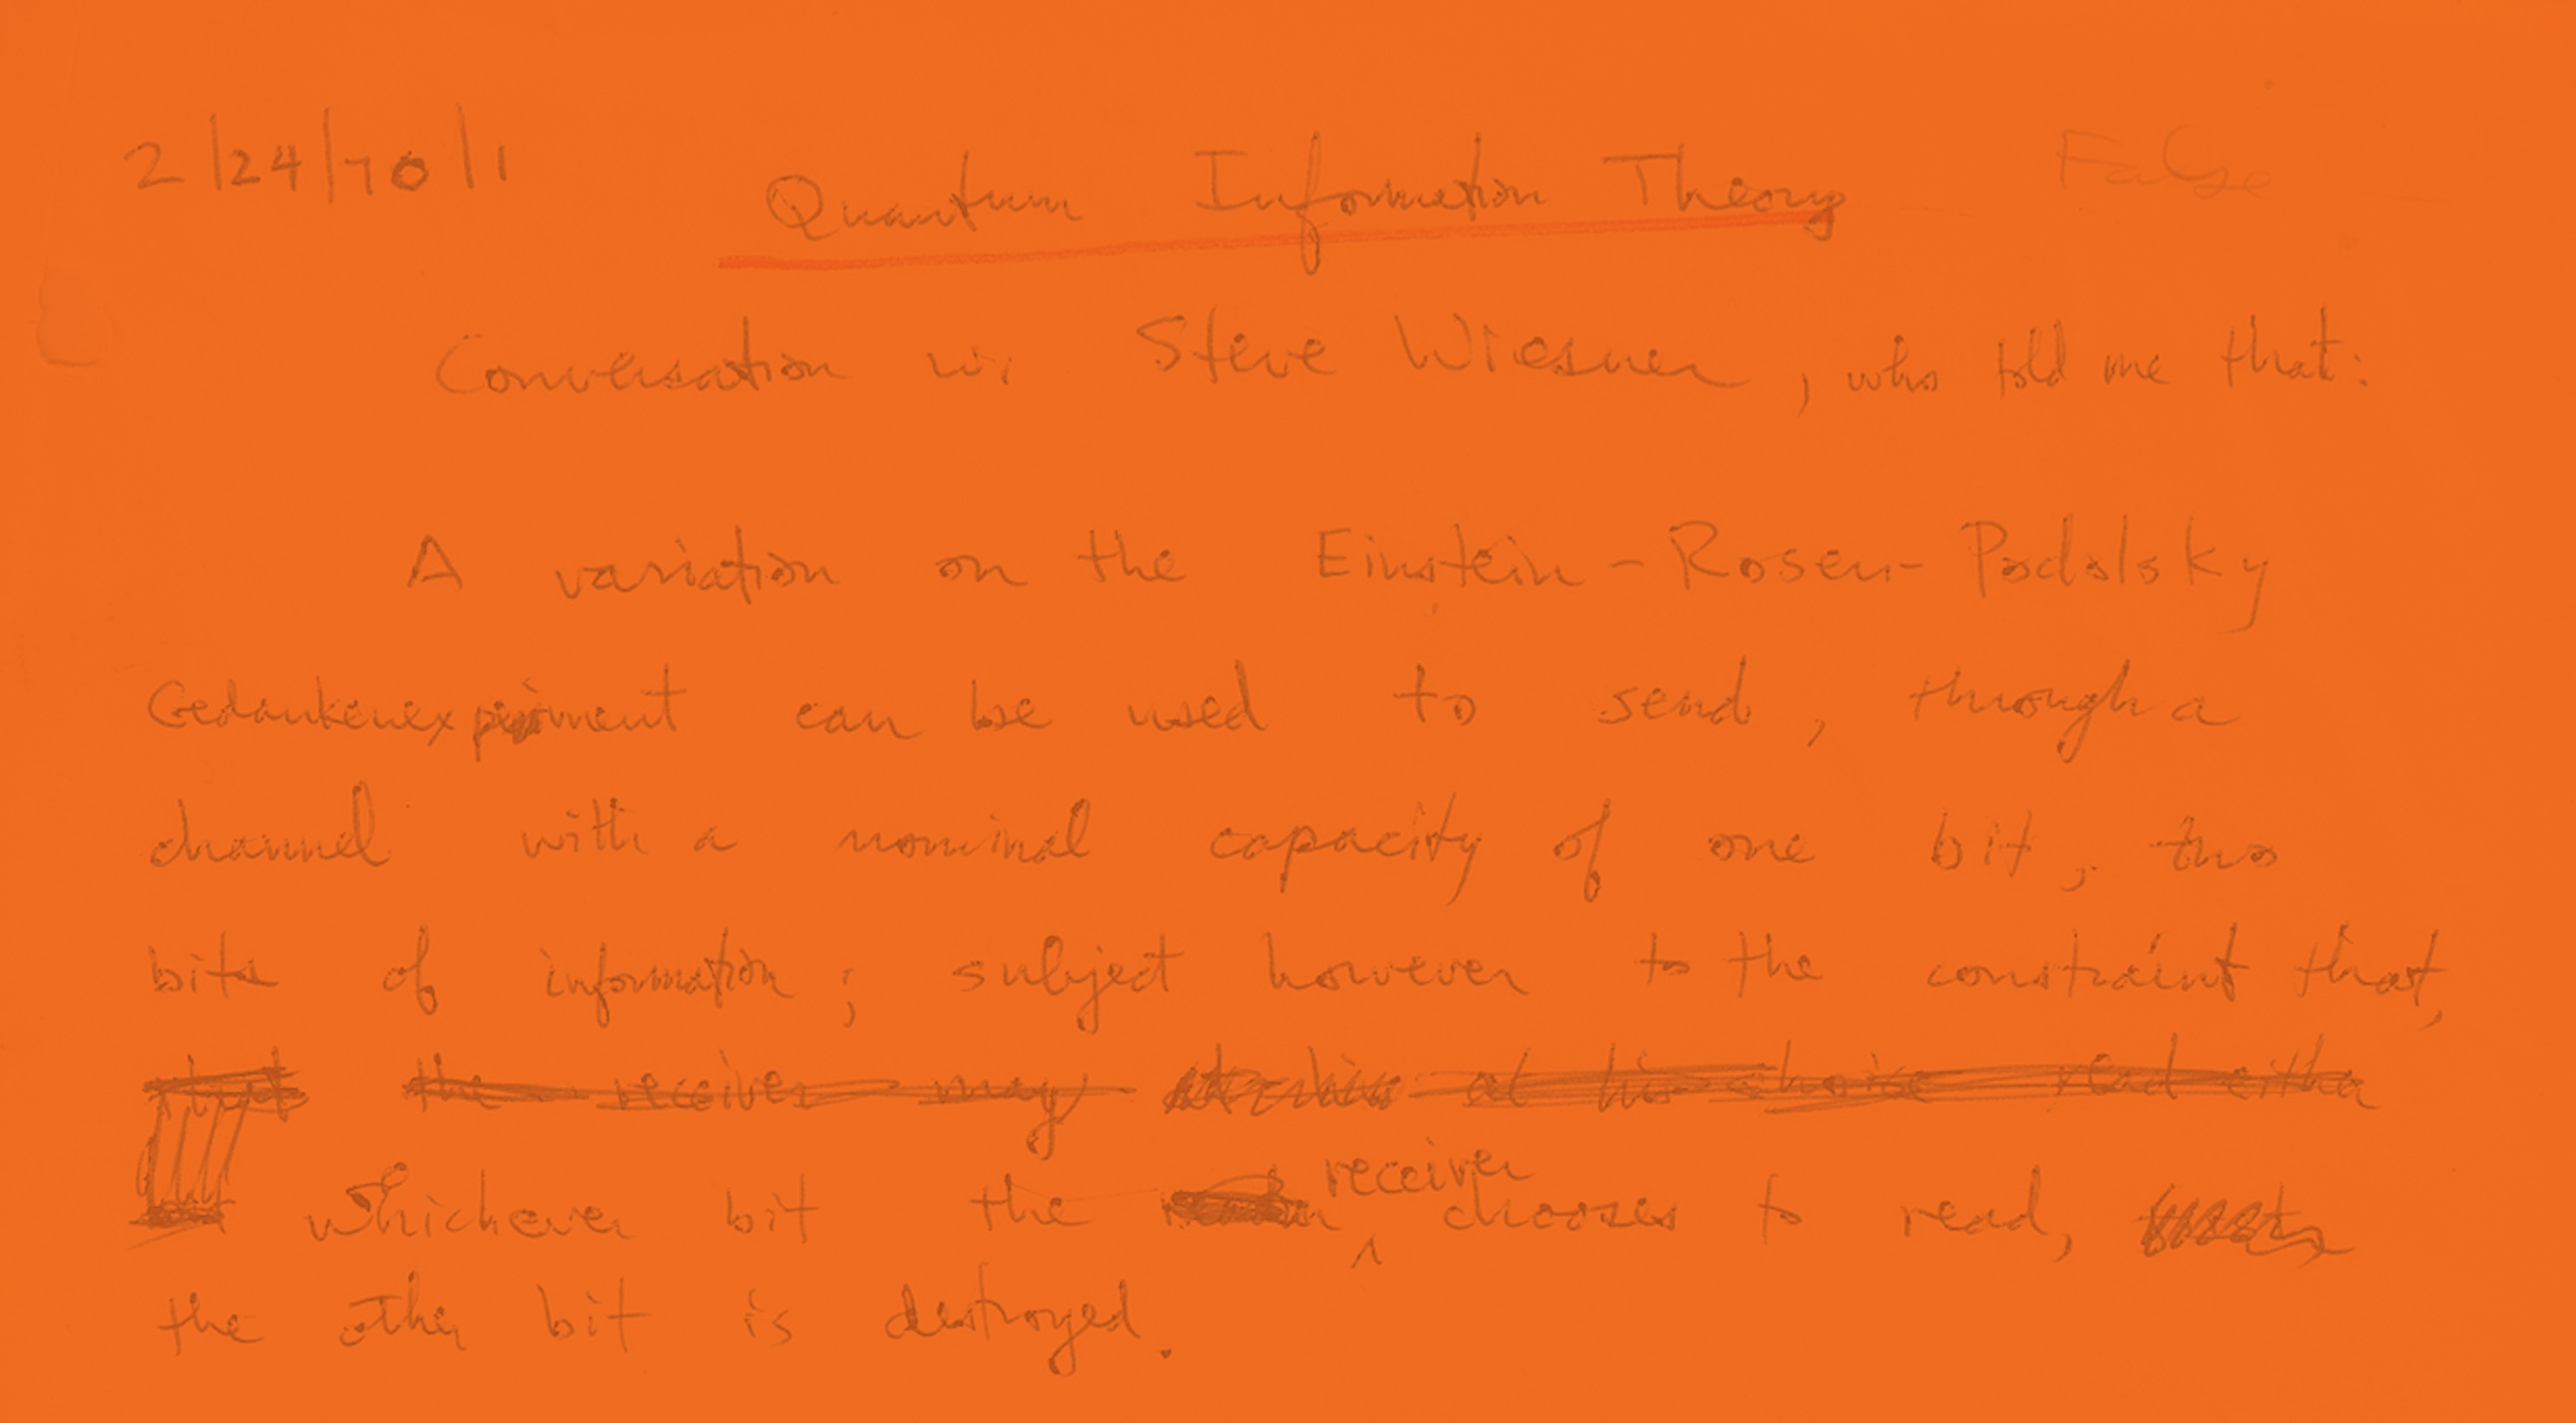 2/24/70/1
Quantum Information Theory
False
Conversation w. Steve Wiesner, who told me that:
A variation on the Einstein-Rosen-Podolsky
Gedankenexperiment can be used to send, through a
channel with a nominal capacity of one bit, two
bits of information; subject however to the constraint that,
the receiver may at his choice read either
whichever bit the receiver chooses to read,
the other bit is destroyed.